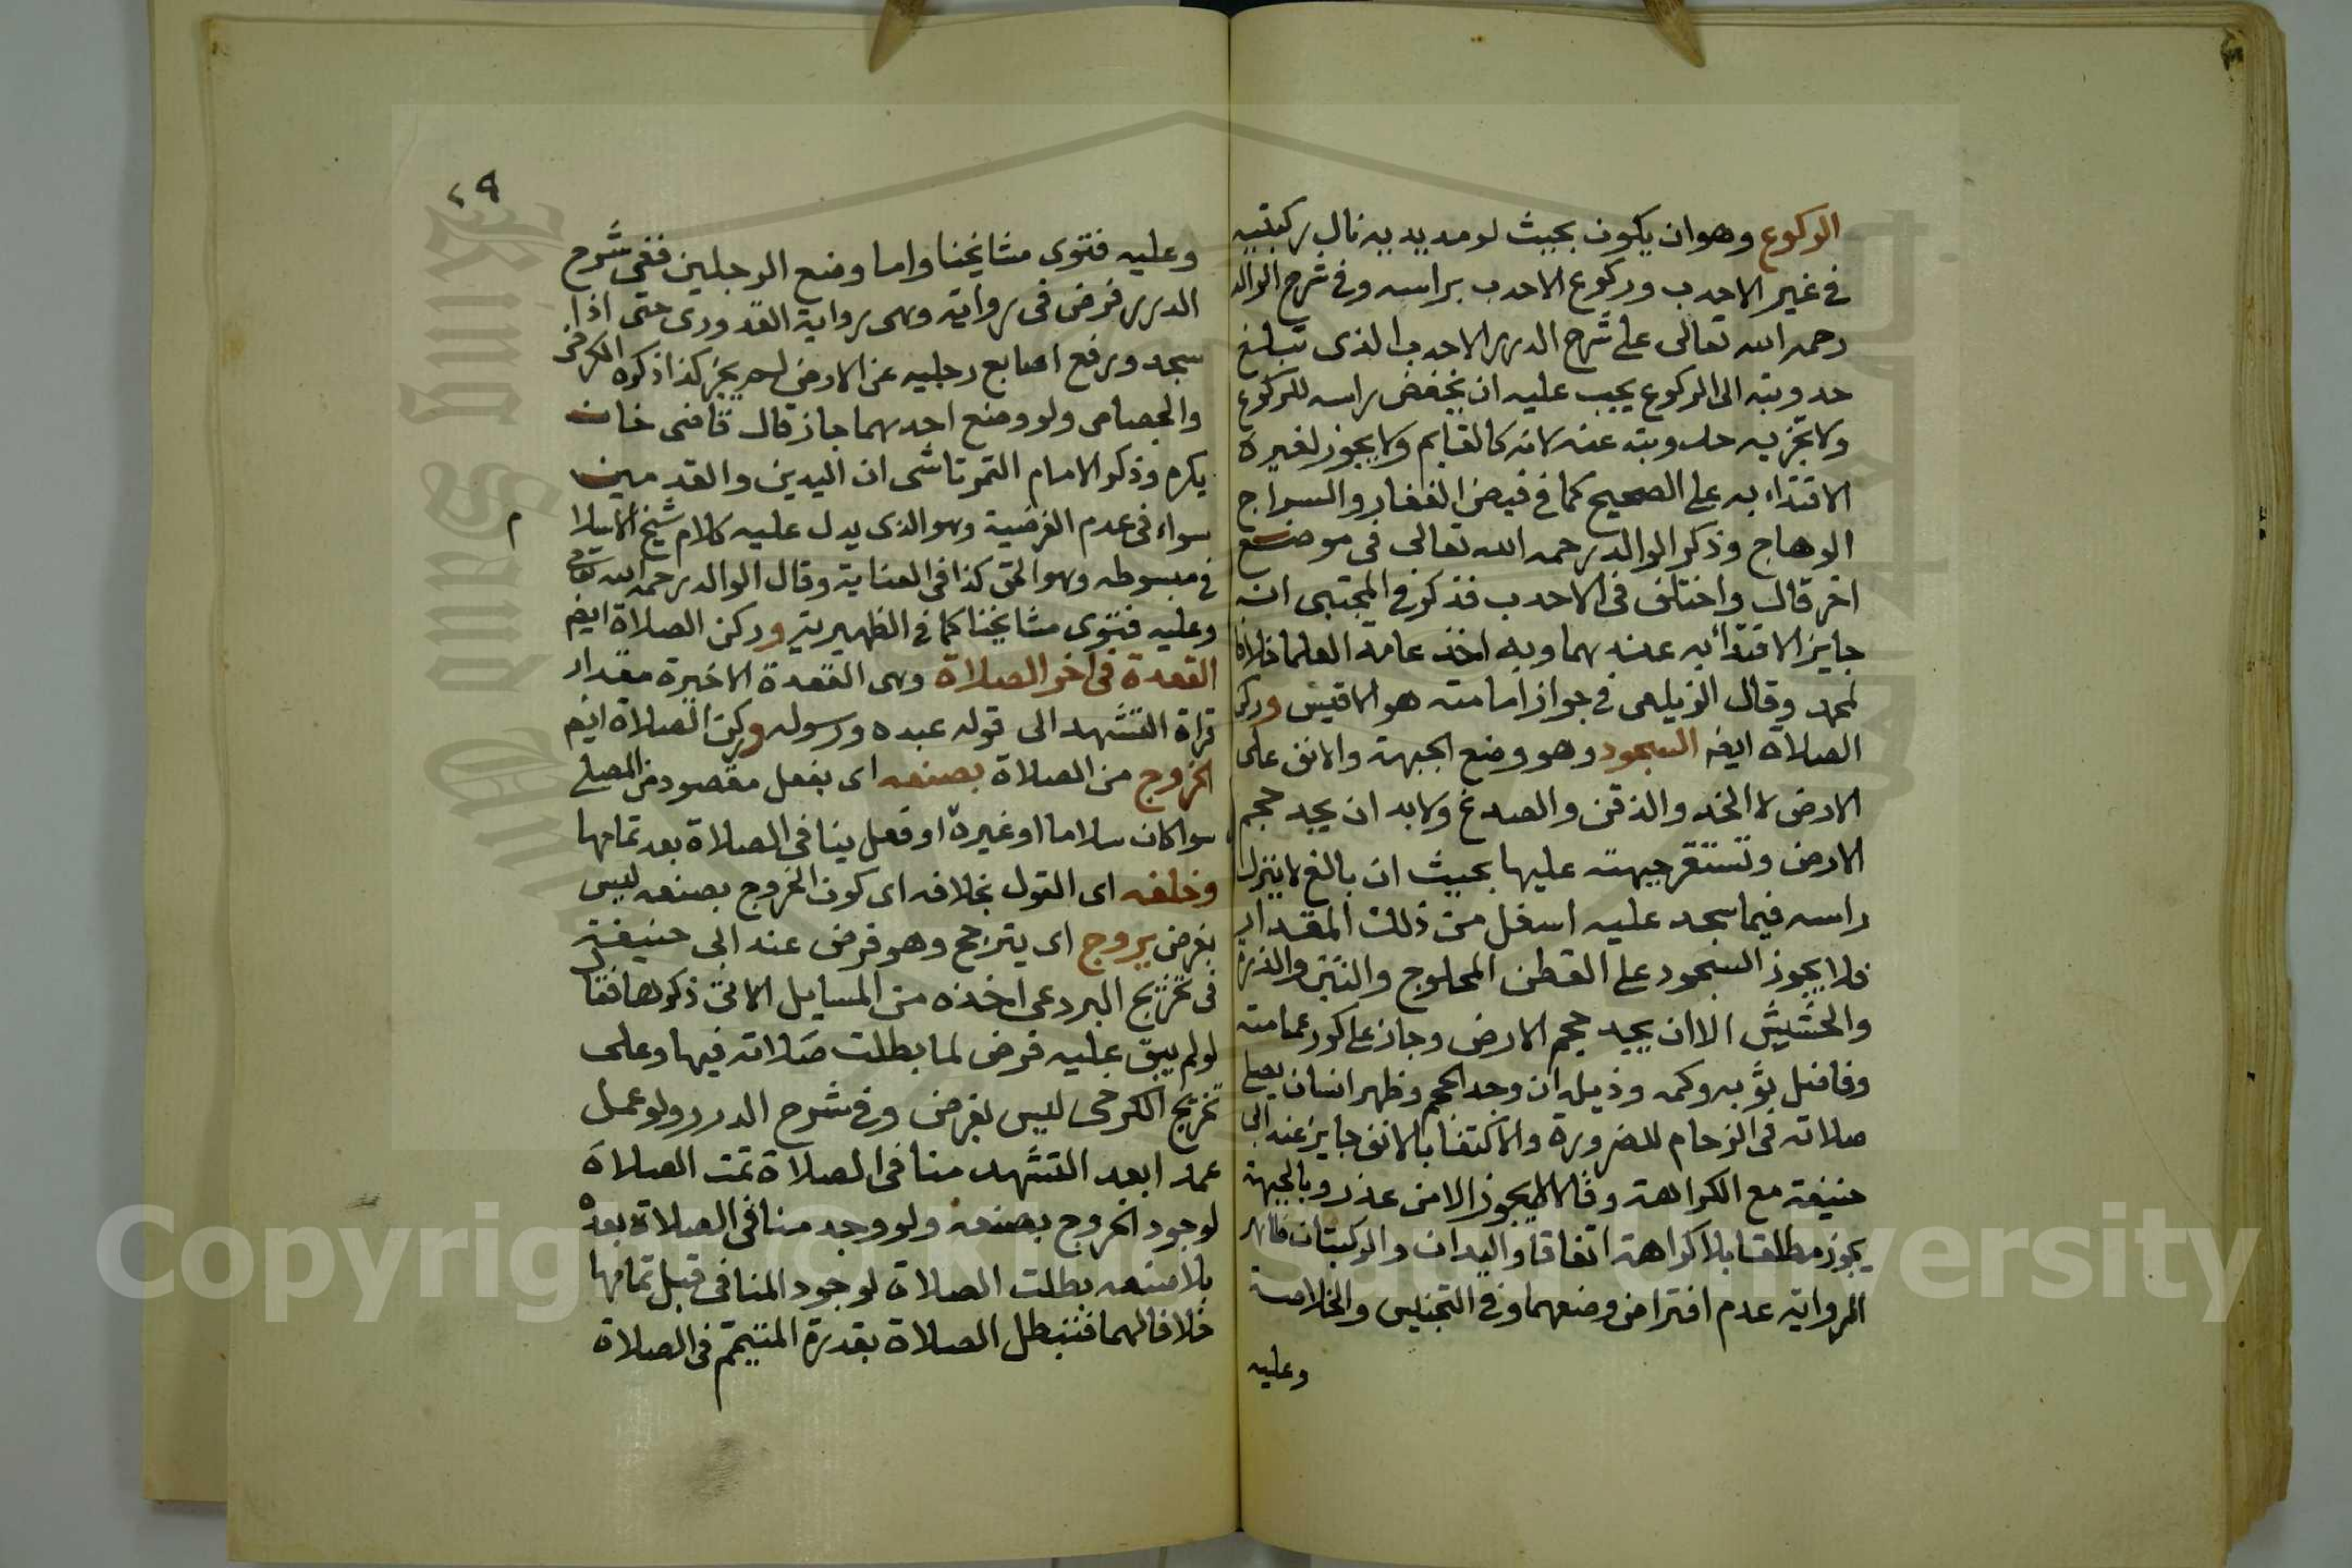 الركوع وهو ان يكون بحيث لو مد يديه نال ركبتيه
في غير الاحدب وركوع الاحدب براسه وفي شرح الوالد
رحمه الله تعالى على شرح الدرر الاحدب الذي تبلغ
حدوبته الى الركوع يجب عليه ان يخفض راسه للركوع
ولا تجزيه حدوبته عنه لانه كالقايم ولا يجوز لغيره
الاقتداء به على الصحيح كما في فيض الغفار والسراج
الوهاج وذكر الوالد رحمه الله تعالى في موضع
اخر قال واختلف في الاحدب فذكر في المجتبى انه
جايز الاقتدا به عندهما وبه اخذ عامة العلما خلافا
لمحمد وقال الزيلعي في جواز امامته هو الاقيس وركن
الصلاة ايضا السجود وهو وضع الجبهة والانف على
الارض لا الخد والذقن والصدغ ولا بد ان يجد حجم
الارض وتستقر جبهته عليها بحيث ان بالغ لا ينزل
راسه فيما سجد عليه اسفل من ذلك المقدار
فلا يجوز السجود على القطن المحلوج والتبن والذرة
والحشيش الا ان يجد حجم الارض وجاز على كور عمامته
وفاضل ثوبه وكمه وذيله ان وجد الحجم وظهر انسان يصلي
صلاته في الزحام للضرورة والاكتفا بالانف جايز عند ابي
حنيفة مع الكراهة وقالا لا يجوز الا من عذر وبالجبهة
يجوز مطلقا بلا كراهة اتفاقا واليدان والركبتان ظاهر
الرواية عدم افتراض وضعهما وفي التجنيس والخلاصة
وعليه
٢٩
وعليه فتوى مشايخنا واما وضع الرجلين ففي شرح
الدرر فرض في رواية وهي رواية القدوري حتى اذا
سجد ورفع اصابع رجليه عن الارض لم يجز كذا ذكره الكرخي
والجصاص ولو وضع احدهما جاز قال قاضي خان
يكره وذكر الامام التمرتاشي ان اليدين والقدمين
سواء في عدم الفرضية وهو الذي يدل عليه كلام شيخ الاسلا م
في مبسوطه وهو الحق كذا في العناية وقال الوالد رحمه الله تعالى
وعليه فتوى مشايخنا كما في الظهيرية وركن الصلاة ايضا
القعدة في اخر الصلاة وهي القعدة الاخيرة مقدار
قراة التشهد الى قوله عبده ورسوله وركن الصلاة ايضا
الخروج من الصلاة بصنعه اي بفعل مقصود من المصلي
سوا كان سلاما او غيره او فعل ينافي الصلاة بعد تمامها
وخلفه اي القول بخلافه اي كون الخروج بصنعه ليس
بفرض يروج اي يترجح وهو فرض عند ابي حنيفة
في تخريج البردعي اخذه من المسايل الاتي ذكرها فقال
لو لم يبق عليه فرض لما بطلت صلاته فيها وعلى
تخريج الكرخي ليس بفرض وفي شرح الدرر ولو عمل
عمدا بعد التشهد منافي الصلاة تمت الصلاة
لوجود الخروج بصنعه ولو وجد منافي الصلاة بعده
بلا صنعه بطلت الصلاة لوجود المنافي قبل تمامها
خلافا لهما فتبطل الصلاة بقدرة المتيمم في الصلاة
Copyright © King Saud University